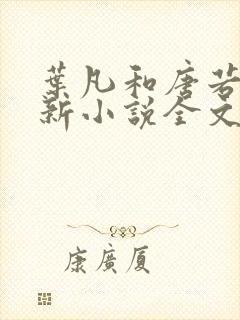 葉凡和唐若
新小說全文
康廣厦